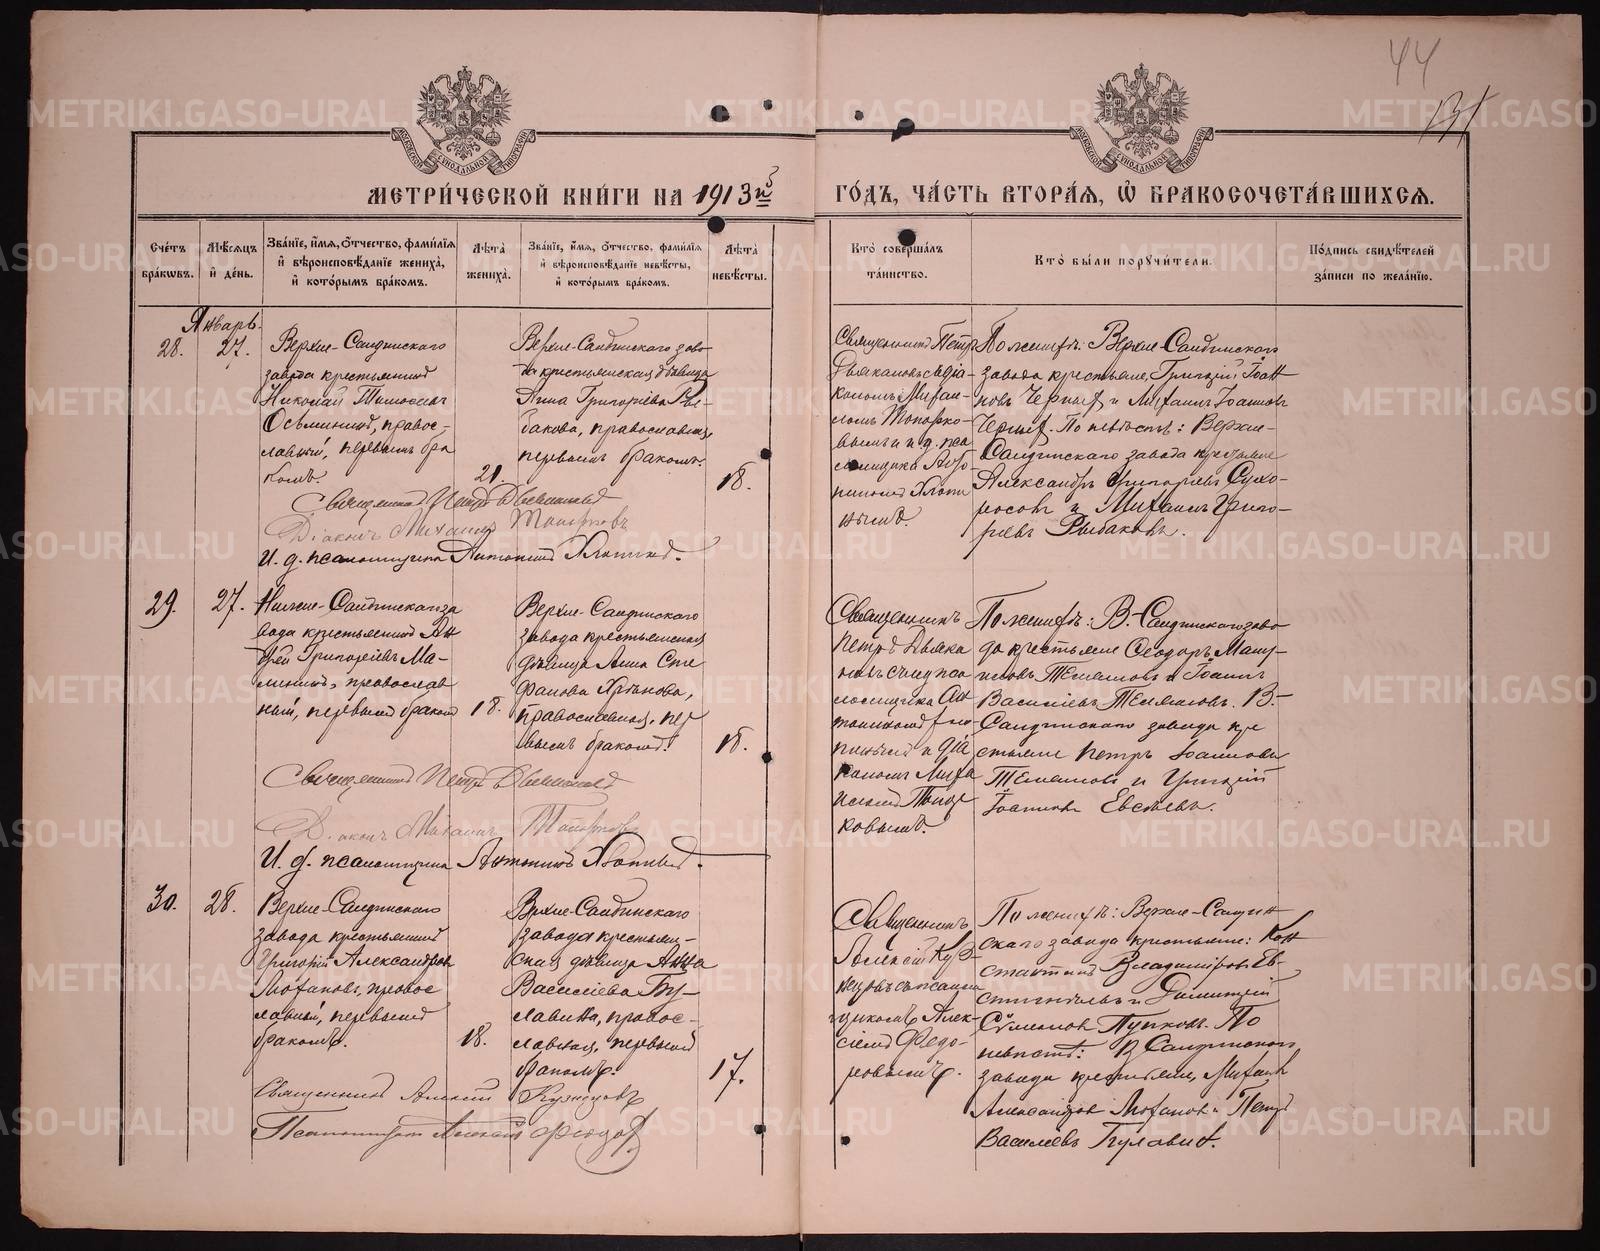 44
131
МОСКОВСКОЙ СУНОДАЛЬНОЙ ТИПОГРАФІИ
МОСКОВСКОЙ СУНОДАЛЬНОЙ ТИПОГРАФІИ
МЕТРИ́ЧЕСКОЙ КНИ́ГИ НА 1913й
ГО́ДЪ, ЧА́СТЬ ВТОРА́Я, Ѡ БРАКОСОЧЕТА́ВШИХСЯ.
Сче́тъ бра́кѡвъ.
Мѣ́сяцъ и҆ де́нь.
Зва́нїе, и҆́мя, ѻ҆́тчество, фами́лїя и҆ вѣроисповѣ́данїе жениха̀, и҆ кото́рымъ бра́комъ.
Лѣ́та жениха̀.
Зва́нїе, и҆́мя, ѻ҆́тчество, фами́лїя и҆ вѣроисповѣ́данїе невѣ́сты, и҆ кото́рымъ бра́комъ.
Лѣ́та невѣ́сты.
Кто̀ соверша́лъ та́инство.
Кто̀ бы́ли поручи́тели.
По́дпись свидѣ́телей за́писи по жела́нїю.
Январь.
28.
27.
Верхне-Салдинскаго
завода крестьянинъ
Николай Тимофеевъ
Осьмининъ, право-
славный, первымъ бра
комъ.
21.
Верхне-Салдинскаго заво-
да крестьянская дѣвица
Анна Григорьева Ры-
бакова, православная,
первымъ бракомъ.
18.
Священникъ Петръ
Дьяконовъ съ діа-
кономъ Михаи-
ломъ Топорко-
вымъ и и. д. пса
ломщика Анто-
ниномъ Хлопи
нымъ.
По женихѣ: Верхне-Салдинскаго
завода крестьяне, Григорій Іоан
новъ Черныхъ и Михаилъ Іоанновъ
Черныхъ. По невѣстѣ: Верхне-
Салдинскаго завода крестьяне
Александръ Григорьевъ Сухо-
росовъ и Михаилъ Григо-
рьевъ Рыбаковъ.
Священникъ Петръ Дьяконовъ
Діаконъ Михаилъ Топорковъ
И. д. псаломщика Антонинъ Хлопинъ.
29.
27.
Нижне-Салдинскаго за
вода крестьянинъ Ан
дрей Григорьевъ Ма-
лининъ, православ
ный, первымъ бракомъ
18.
Верхне-Салдинскаго
завода крестьянская
дѣвица Анна Сте
фанова Хрѣнова,
православная, пер
вымъ бракомъ.
18.
Священникъ
Петръ Дьяко
новъ съ и д пса
ломщика Ан
тониномъ Хло-
пинымъ и діа
кономъ Миха
иломъ Топор
ковымъ.
По женихѣ: В.-Салдинскаго заво
да крестьяне Ѳеодоръ Ману-
иловъ Телешовъ и Іоаннъ
Васильевъ Телешовъ. В.-
Салдинскаго завода кре
стьяне Петръ Іоанновъ
Телешовъ и Григорій
Іоанновъ Евсѣевъ.
Священникъ Петръ Дьяконовъ
Діаконъ Михаилъ Топорковъ
И. д. псаломщика Антонинъ Хлопинъ.
30.
28.
Верхне-Салдинскаго
завода крестьянинъ
Григорій Александровъ
Мохановъ, право-
славный, первымъ
бракомъ.
18.
Верхне-Салдинскаго
завода крестьян-
ская дѣвица Анна
Василіева Бу-
лавина, право-
славная, первымъ
бракомъ.
17.
Священникъ
Алексій Куз-
нецовъ съ псалом
щикомъ Алек-
сіемъ Ѳедо-
ровымъ.
По женихѣ: Верхне-Салдин
скаго завода крестьяне: Кон
стантинъ Владиміровъ Ев-
стигнѣевъ и Димитрій
Сѵмеоновъ Пупковъ. По
невѣстѣ: В Салдинскаго
завода крестьяне, Михаилъ
Александровъ Мохановъ и Петръ
Василіевъ Булавинъ.
Священникъ Алексій Кузнецовъ
Псаломщикъ Алексій Ѳедоровъ